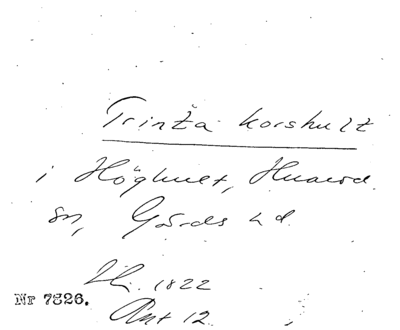 Trinža korshult
i Höghult, Hnarød
sn, Gärds hd.
1822
Nr 7826.
Ant 12